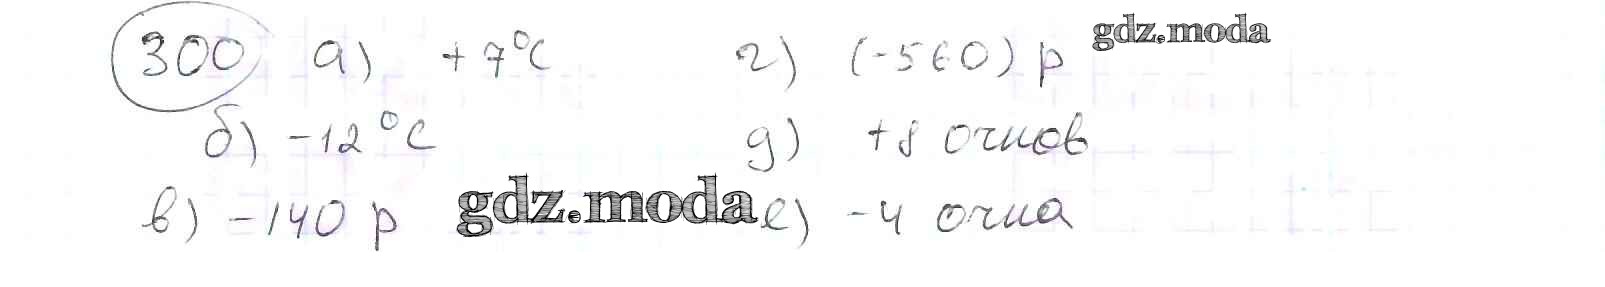 300 а) +7°C г) (-560) р gdz.moda
б) -12°C д) +8 очков
в) -140 р gdz.moda е) -4 очка